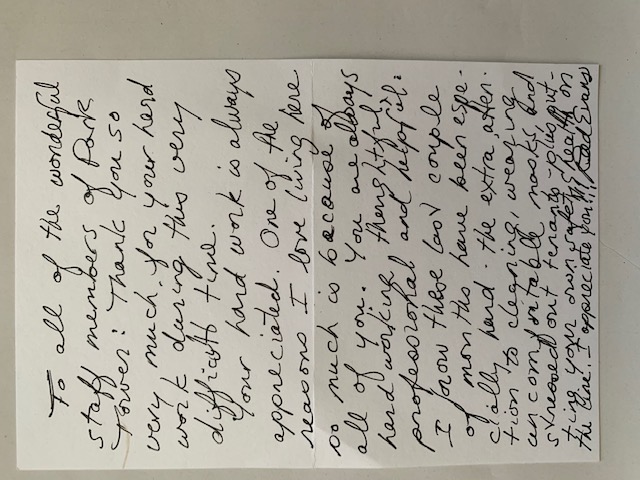 To all of the wonderful
staff members of Park
Tower: Thank you so
very much for your hard
work during this very
difficult time.
Your hard work is always
appreciated. One of the
reasons I love living here
so much is because of
all of you. You are always
hard working, thoughtful,
professional and helpful.
I know these last couple
of months have been espe-
cially hard. the extra atten-
tion to cleaning, wearing
uncomfortable masks, and
stressed out tenants - plus put-
ting your own safety & health on
the line. I appreciate you!!! Evans